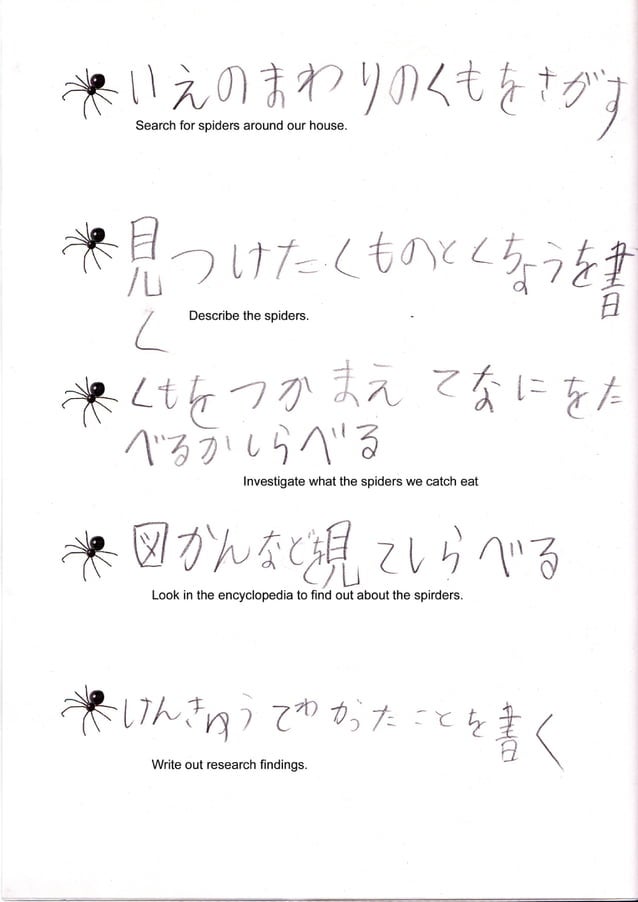 いえのまわりのくもをさがす
Search for spiders around our house.
見つけたくものとくちょうを書
Describe the spiders.
く
くもをつかまえてなにをた
べるかしらべる
Investigate what the spiders we catch eat
図かんなどを見てしらべる
Look in the encyclopedia to find out about the spirders.
けんきゅうでわかったことを書く
Write out research findings.